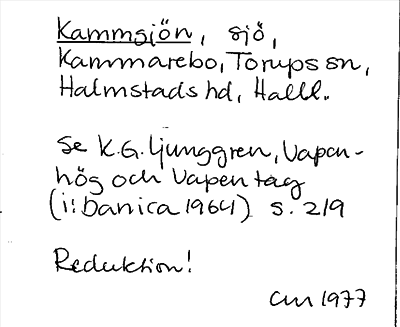 Kammsjön, sjö,
Kammarebo, Torups sn,
Halmstads hd, Hall.
Se K.G. Ljunggren, Vapen-
hög och Vapentag
(i: Danica 1964) s. 219
Reduktion!
CM 1977